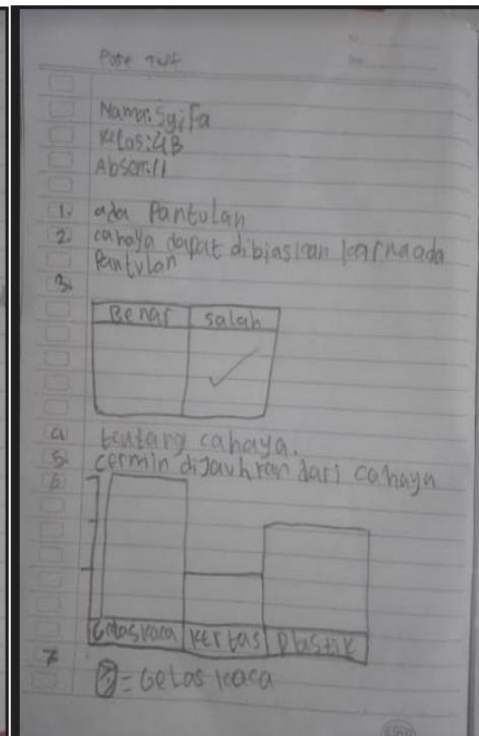 Post test
Nama: Syifa
Kelas: 4B
Absen: 11
1. ada Pantulan
2. cahaya dapat dibiaskan karna ada
Pantulan
3.
Benar salah
4 tentang cahaya.
5. cermin dijauhkan dari cahaya
6
Gelas kaca kertas Plastik
7
= Gelas kaca